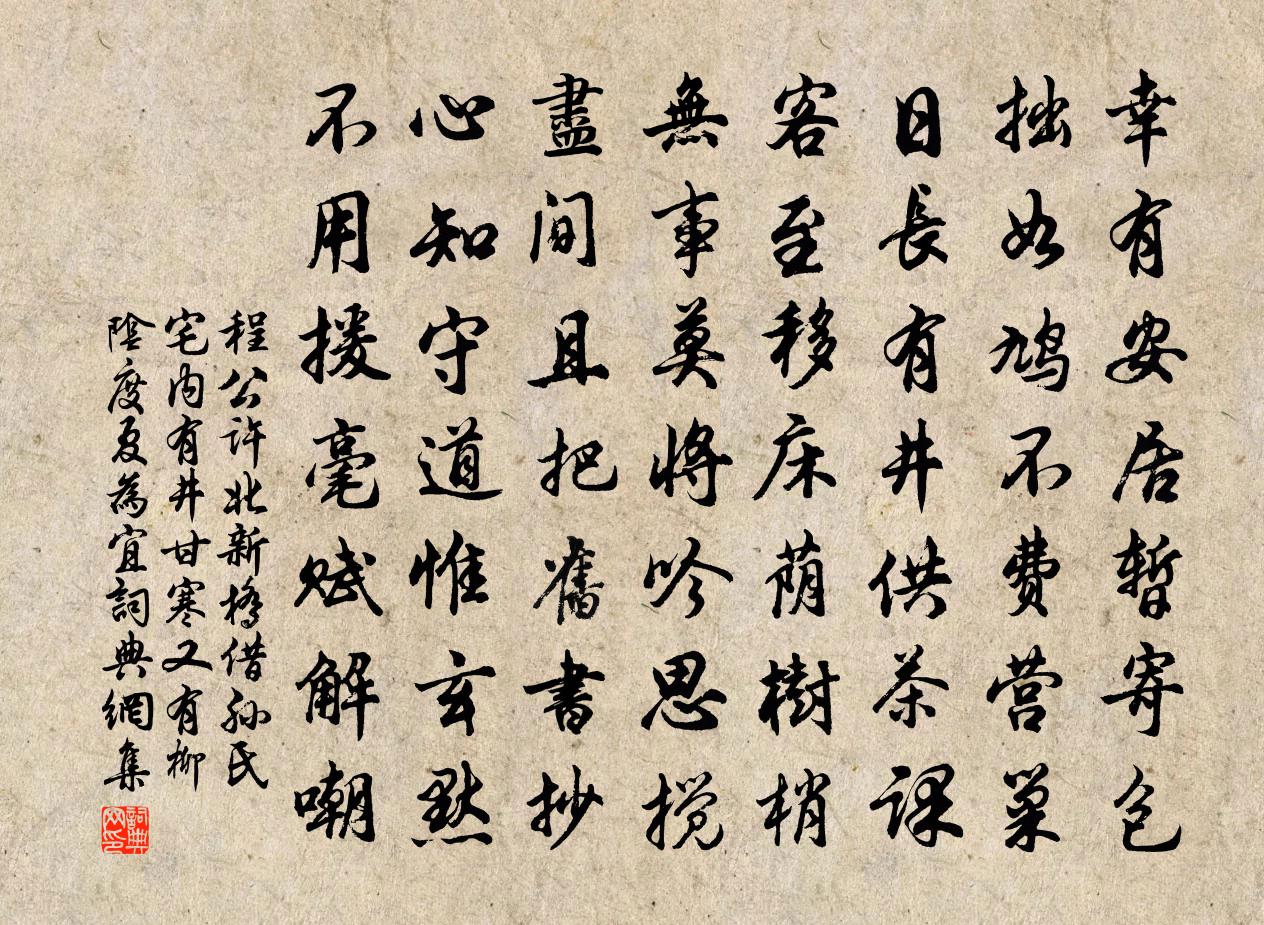 幸有安居暫寄包
拙如鳩不費营巢
日長有井供茶课
客至移床荫樹梢
無事莫將吟思搅
盡间且把舊書抄
心知守道惟玄默
不用援毫赋解嘲
程公许北新橋借孙氏
宅内有井甘寒又有柳
陰度夏為宜詞典網集
詞典网印